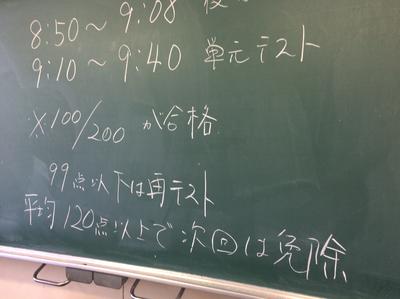 8:50～9:08
9:10～9:40 単元テスト
※100/200 が合格
99点以下は再テスト
平均120点以上で次回は免除